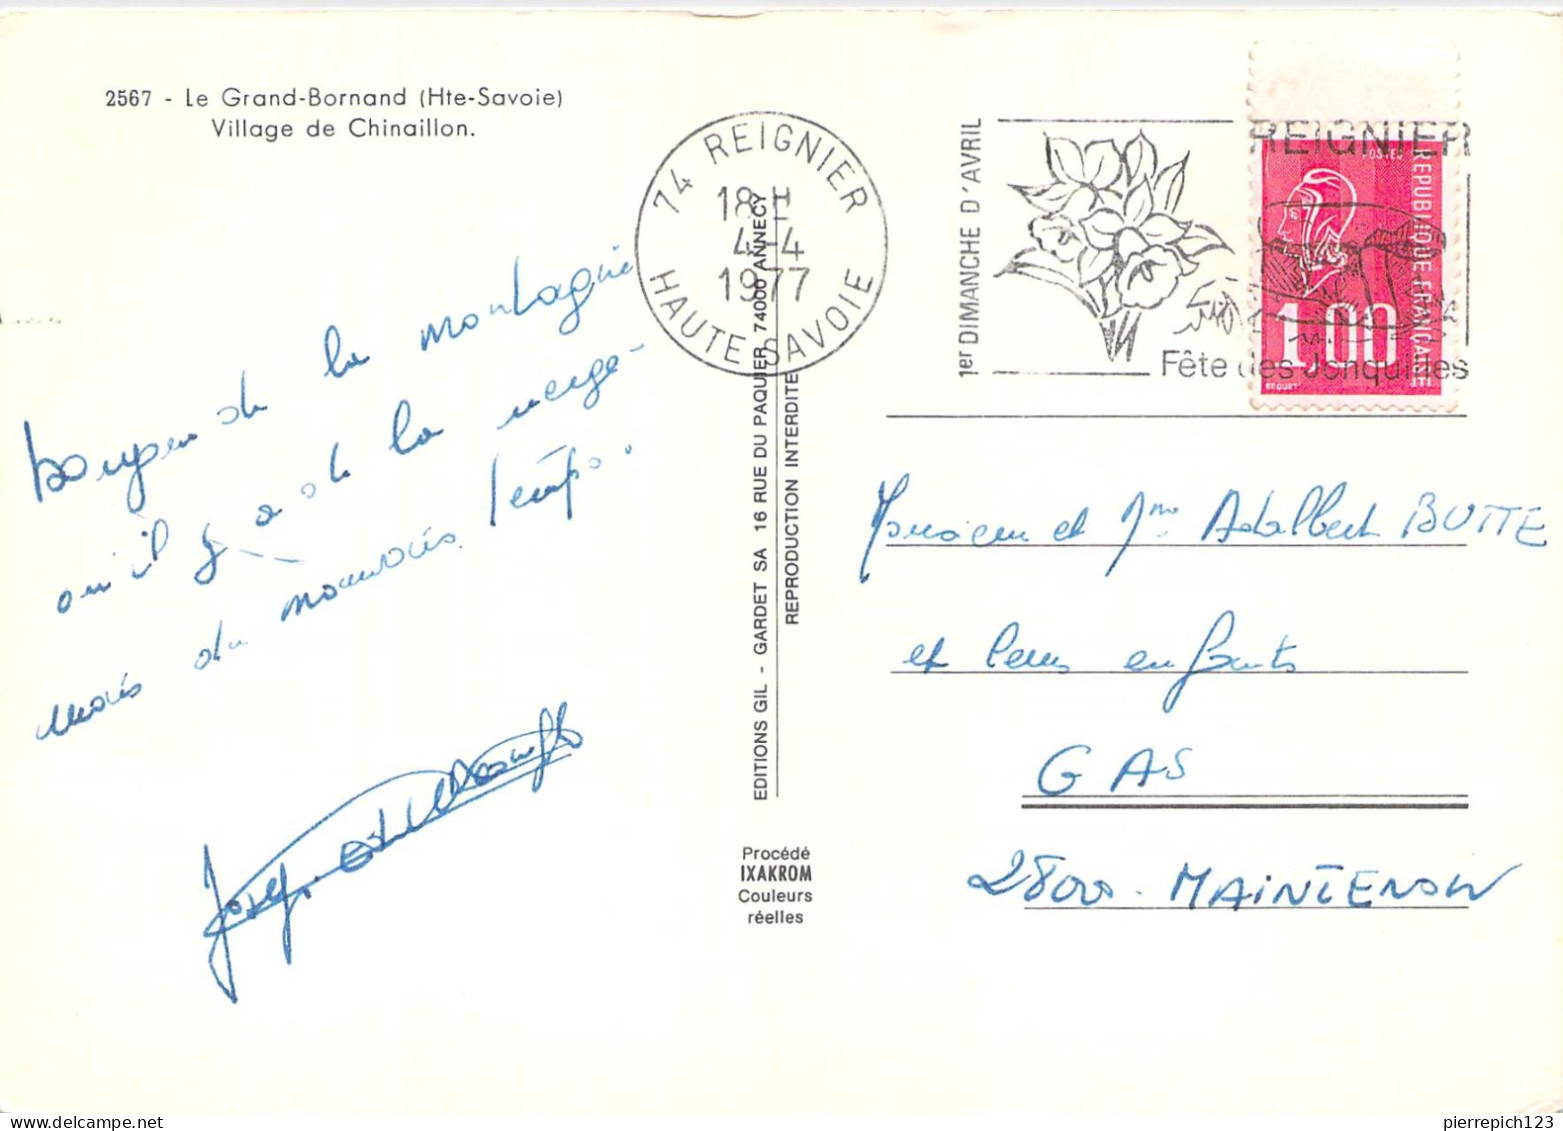 2567 - Le Grand-Bornand (Hte-Savoie)
Village de Chinaillon.
74 REIGNIER
18 H
4-4
1977
HAUTE-SAVOIE
1er DIMANCHE D'AVRIL
REIGNIER
Fête des Jonquilles
POSTES
REPUBLIQUE FRANÇAISE
1,00
BEQUET
de la montagne
ou il y a de la neige
mais du mauvais temps.
EDITIONS GIL - GARDET SA 16 RUE DU PAQUIER 74000 ANNECY
REPRODUCTION INTERDITE
Procédé
IXAKROM
Couleurs
réelles
Monsieur et Mme Adalbert BUTTE
et leurs enfants
GAS
28000 - MAINTENON
pierrepich123